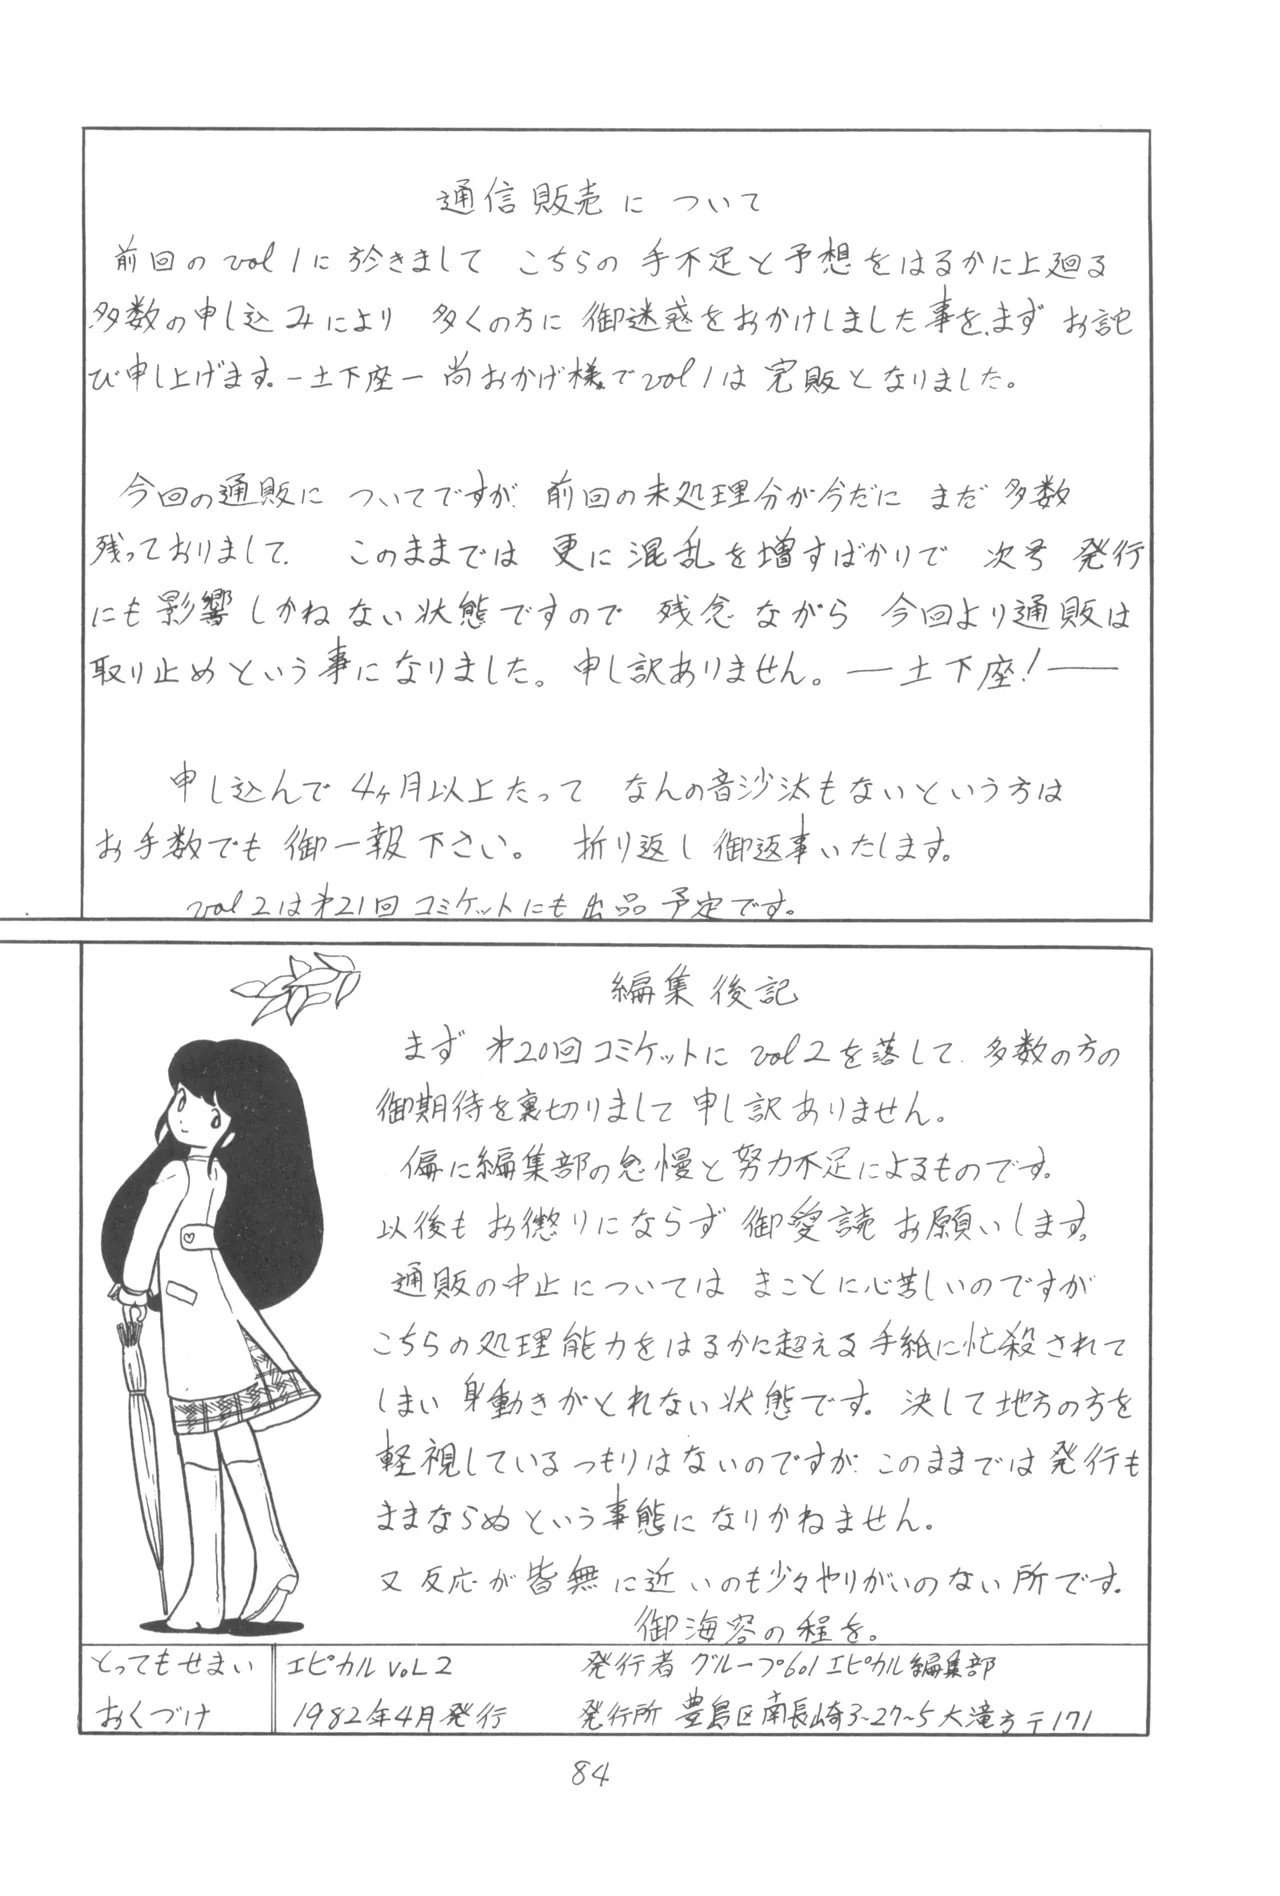 通信販売について
前回のvol1に於きまして こちらの手不足と予想をはるかに上廻る
多数の申し込みにより 多くの方に御迷惑をおかけしました事を、まず お詫
び申し上げます。—土下座— 尚おかげ様でvol1は完販となりました。
今回の通販に ついてですが、前回の未処理分が今だに まだ多数
残っておりまして、 このままでは 更に混乱を増すばかりで 次号 発行
にも影響しかねない状態ですので 残念ながら 今回より通販は
取り止めという事になりました。申し訳ありません。——土下座!——
申し込んで4ヶ月以上たって なんの音沙汰もないという方は
お手数でも御一報下さい。 折り返し御返事いたします。
vol2は㐧21回コミケットにも出品予定です。
編集後記
まず㐧20回コミケットに vol2を落して、多数の方の
御期待を裏切りまして申し訳ありません。
偏に編集部の怠慢と努力不足によるものです。
以後もお懲りにならず御愛読お願いします。
通販の中止については まことに心苦しいのですが
こちらの処理能力をはるかに超える手紙に忙殺されて
しまい身動きがとれない状態です。決して地方の方を
軽視しているつもりはないのですが、このままでは発行も
ままならぬという事態になりかねません。
又反応が皆無に近いのも少々やりがいのない所です。
御海容の程を。
とってもせまい
おくづけ
エピカル VOL2
1982年4月発行
発行者 グループ601エピカル編集部
発行所 豊島区南長崎3-27-5大滝方〒171
84